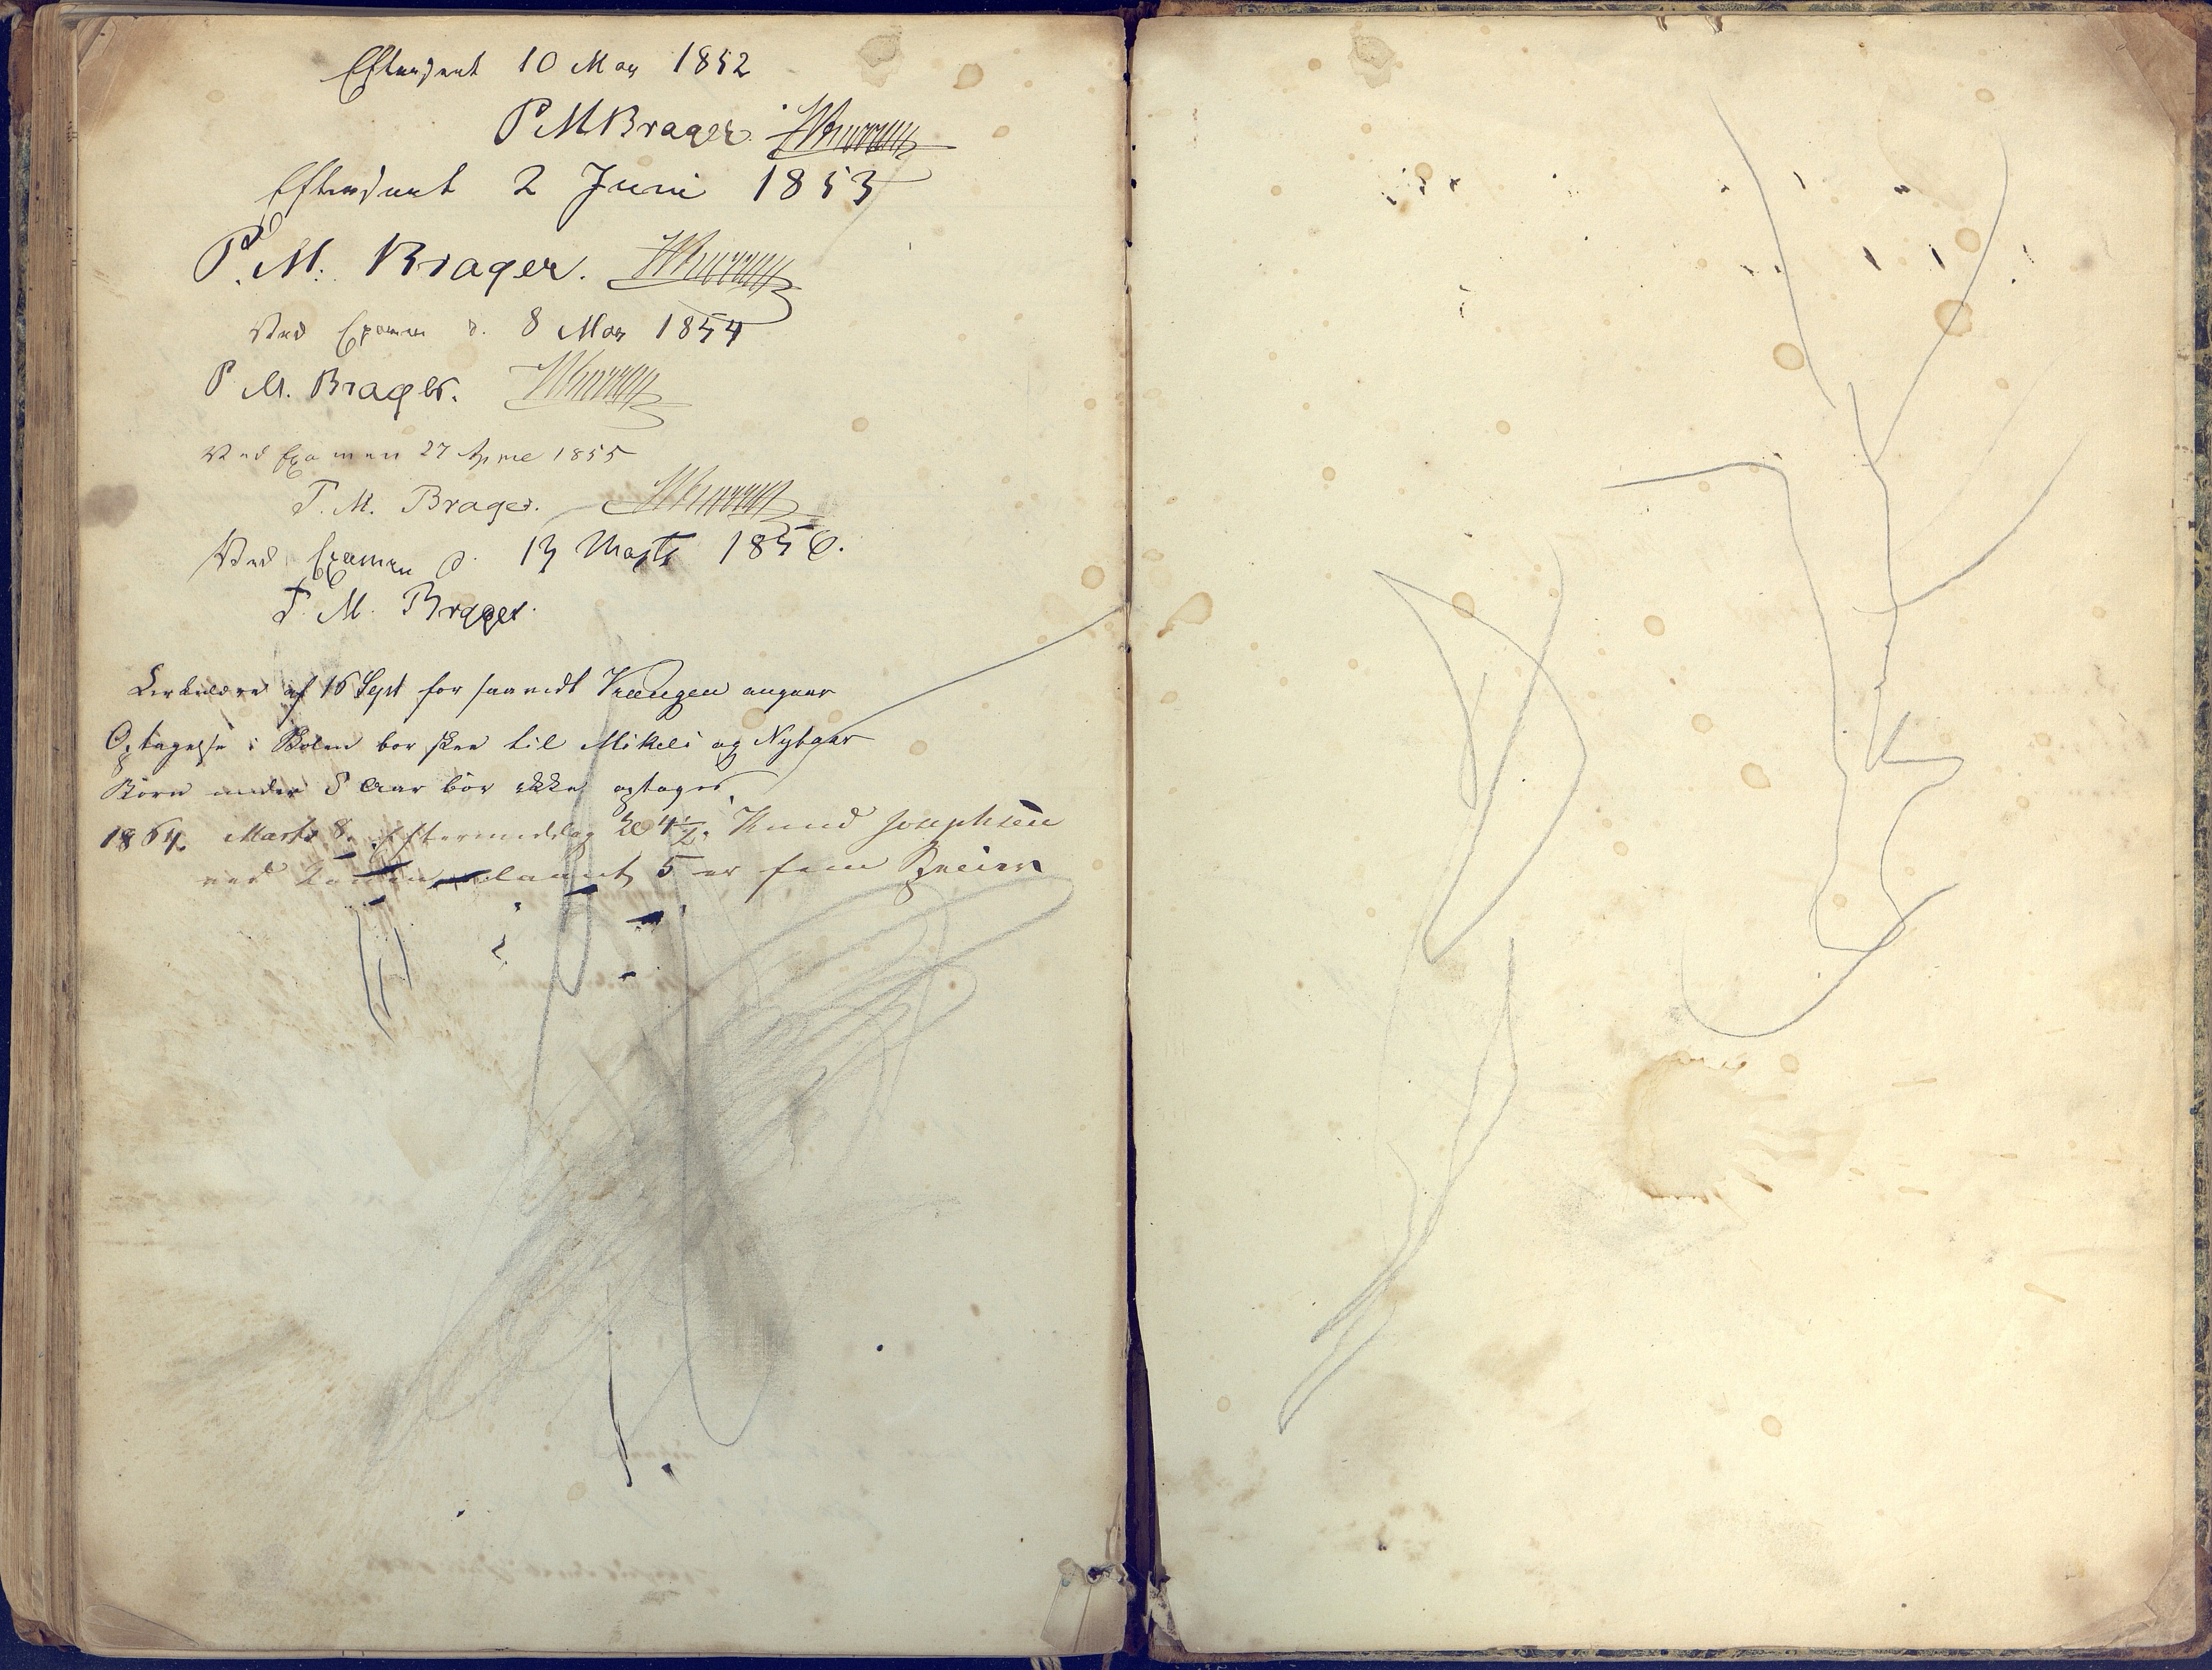 Efterseet 10 May 1852
P M Brager.
Efterseet 2 Juni 1853
P. M. Brager.
Ved Examen d. 8 May 1854
P. M. Brager.
Ved Examen 27 Aprill 1855
P. M. Brager.
Ved Examen d. 13 Marts 1856.
P. M. Brager
af 16 Sept for saavidt angaar
Optagelse i Skolen bør skee til Mikeli og Nytaar
Børn under 8 Aar bør ikke optages
1864. Marts 8. Eftermiddag Kl 4½. Knud Josephsen
ved 5 er fem